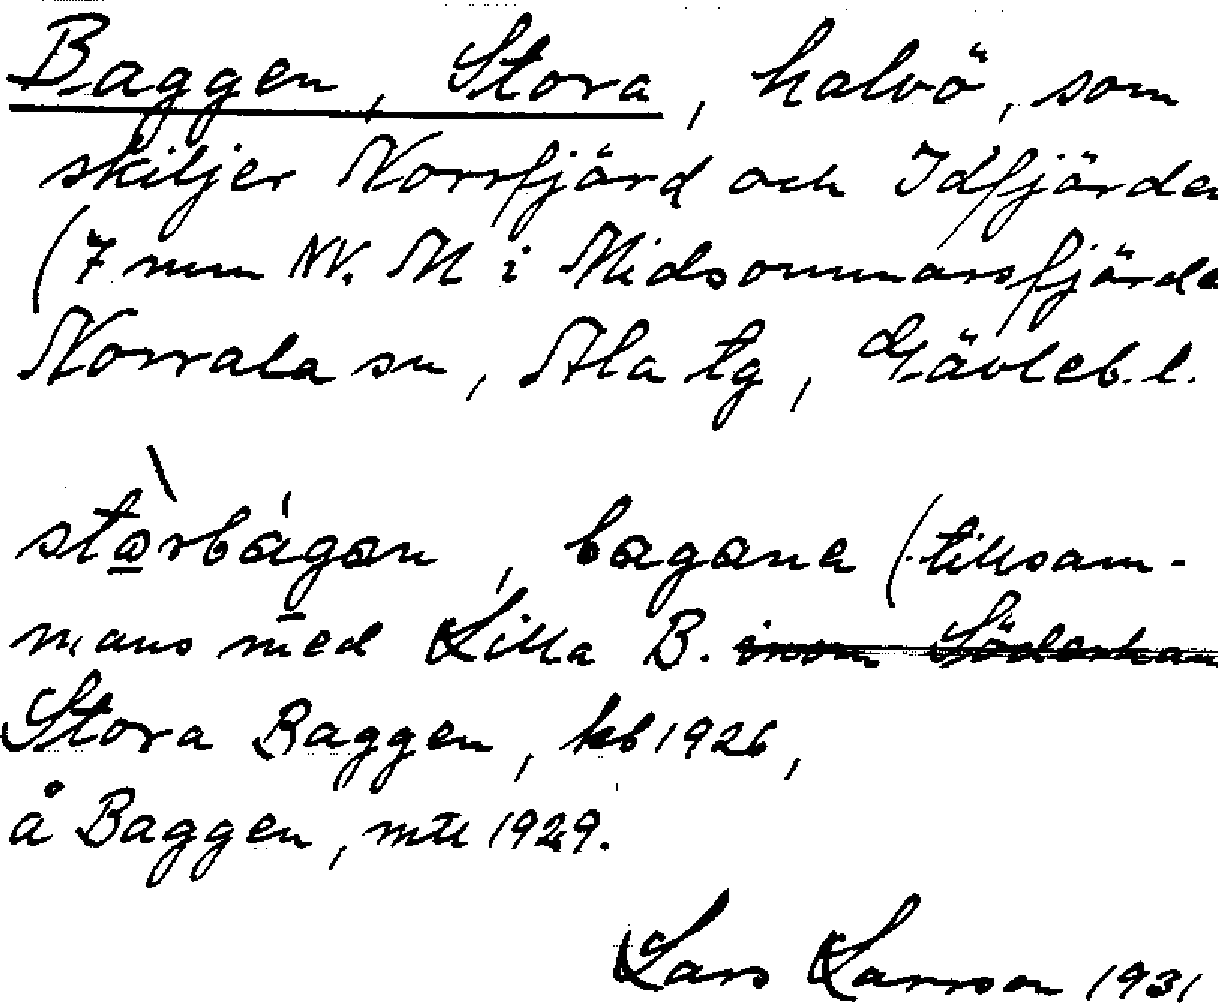 Baggen, Stora, halvö, som
skiljer Norrfjärd och Idfjärden
(7 mm NV. M i Midsommarsfjärde
Norrala sn, Ala tg, Gävleb. l.
bagana (tillsam-
mans med Lilla B. inom Söderham
Stora Baggen, kb 1926,
å Baggen, mtl 1929.
Lars Larsson 1931